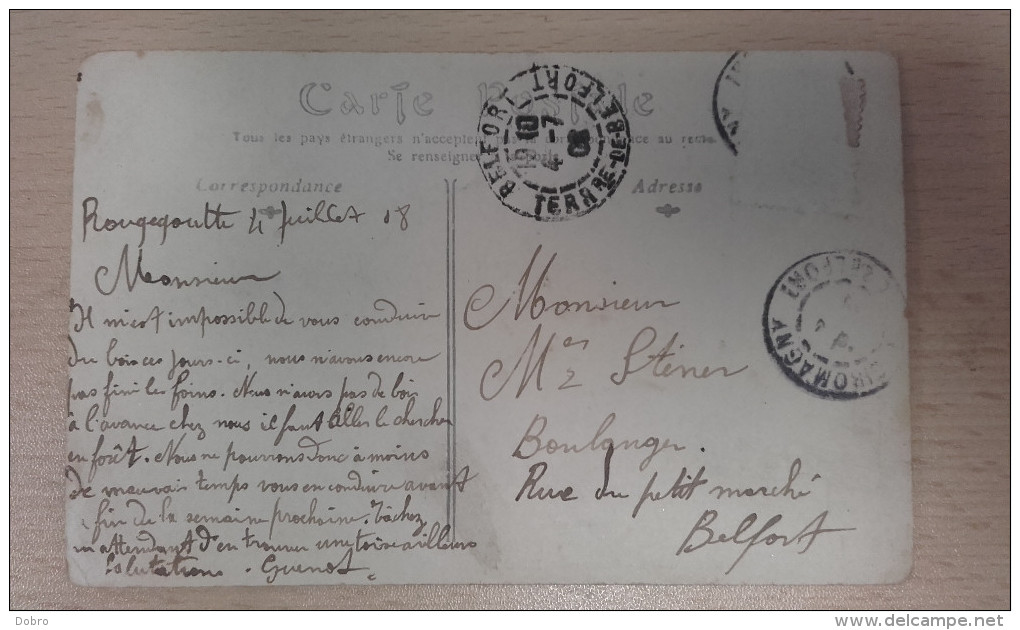 Carte Postale
Tous les pays étrangers n'acceptent pas la correspondance au recto
Se renseigner à la poste
Correspondance
Adresse
BELFORT
10 10
4 -7
08
TERRE-DE-BELFORT
GIROMAGNY
BELFORT
Rougegoutte 4 Juillet 08
Monsieur
Il m'est impossible de vous conduire
du bois ces jours-ci, nous n'avons encore
pas fini les foins. Nous n'avons pas de bois
à l'avance chez nous il faut aller le chercher
en forêt. Nous ne pourrons donc à moins
de mauvais temps vous en conduire avant
fin de la semaine prochaine. Tâchez
en attendant d'en trouver une toise ailleurs
Salutations. Guenot
Monsieur
Stiner
Boulanger.
Rue du petit marché
Belfort
Dobro
delcampe.net